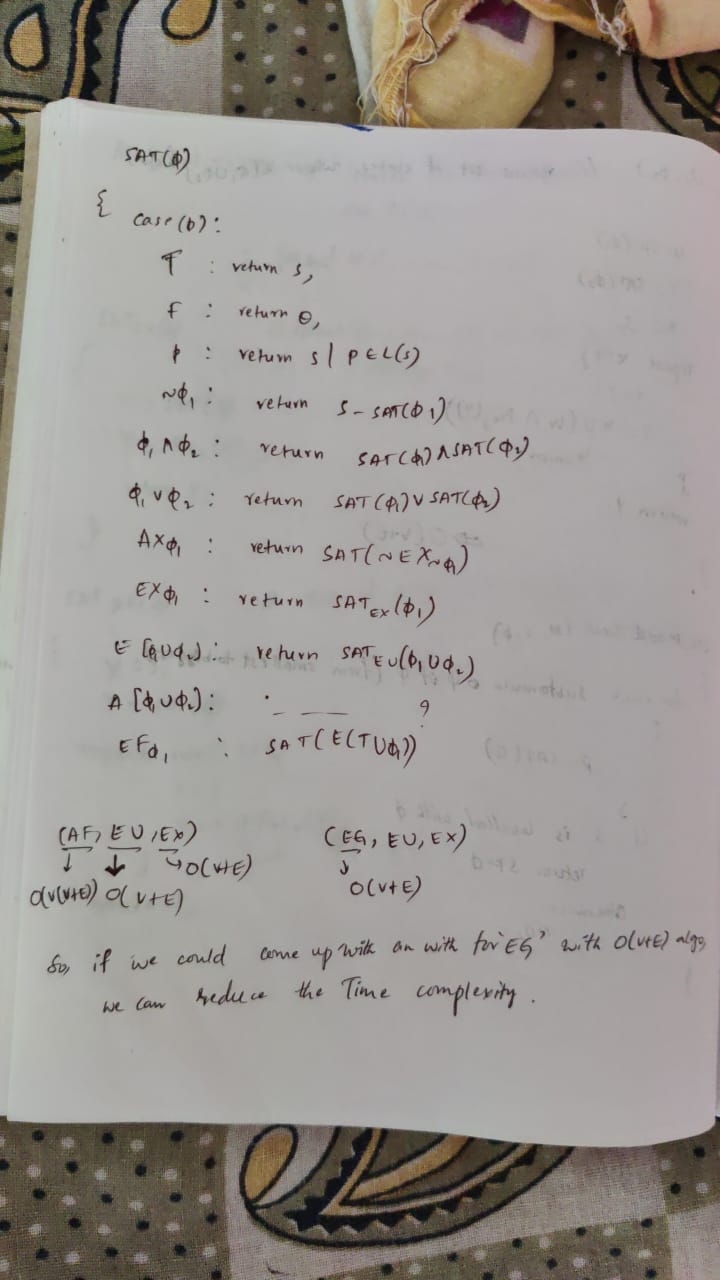 SAT(ϕ)
{ case(ϕ):
T : return S,
f : return θ,
p : return s | p ∈ L(s)
~ϕ₁ : return S - SAT(ϕ₁)
ϕ₁ ∧ ϕ₂ : return SAT(ϕ₁) ∧ SAT(ϕ₂)
ϕ₁ ∨ ϕ₂ : return SAT(ϕ₁) ∨ SAT(ϕ₂)
AXϕ₁ : return SAT(~EX~ϕ₁)
EXϕ₁ : return SAT_EX(ϕ₁)
E [ϕ₁ ∪ ϕ₂) : return SAT_EU(ϕ₁ ∪ ϕ₂)
A [ϕ₁ ∪ ϕ₂) : . __ __ ?
EFϕ₁ : SAT(E(T ∪ ϕ₁))
(AF, EU, EX) (EG, EU, EX)
↓ ↓ ↪ O(V+E) ↓
O(V(V+E)) O(V+E) O(V+E)
So, if we could come up with an with for 'EG' with O(V+E) algo,
we can reduce the Time complexity.